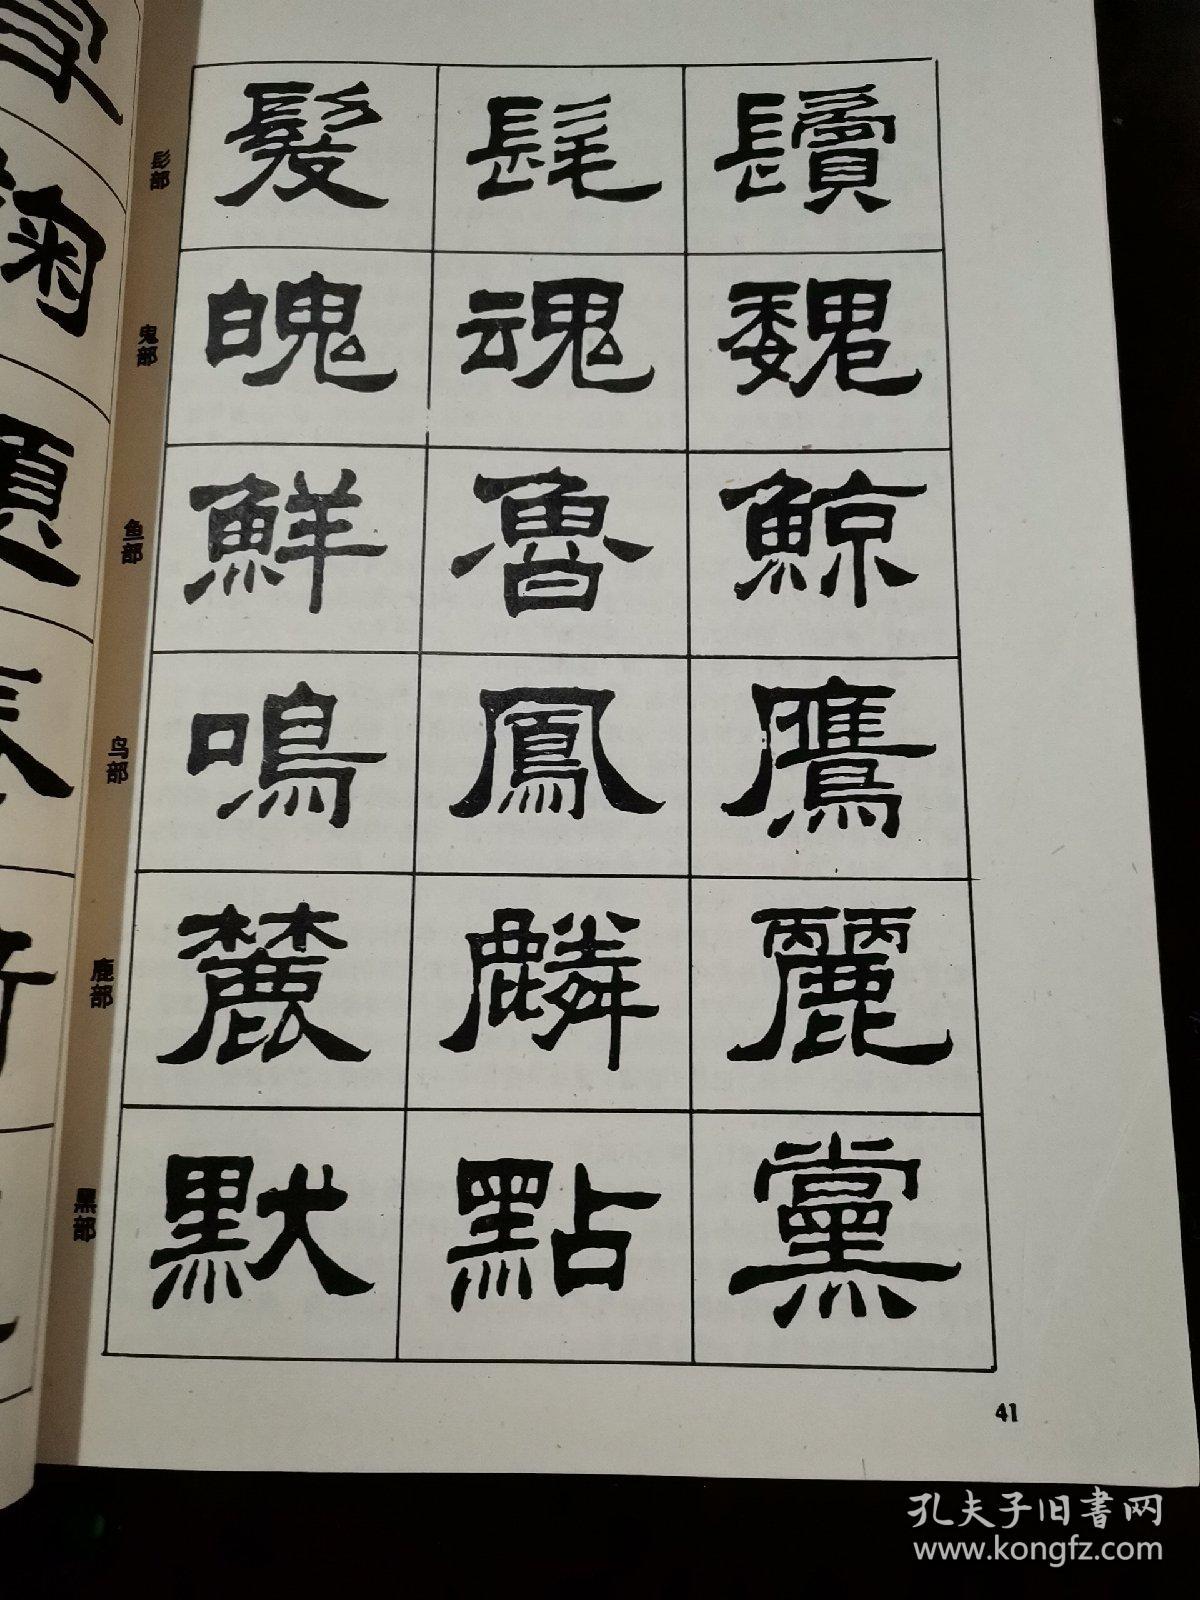 髟部
髮 髦 鬢
鬼部
魄 魂 魏
鱼部
鮮 魯 鯨
鸟部
鳴 鳳 鷹
鹿部
麓 麟 麗
黑部
默 點 黨
41
孔夫子旧書网
www.kongfz.com